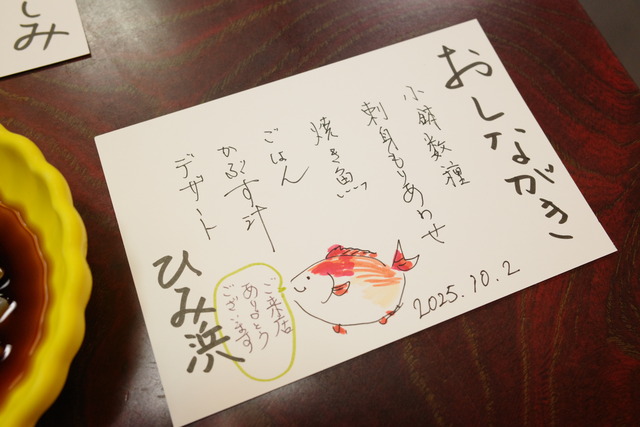 おしながき
小鉢数種
刺身もりあわせ
焼き魚
ごはん
かぶす汁
デザート
ひみ浜
ご来店
ありがとう
ございます
2025.10.2
しみ